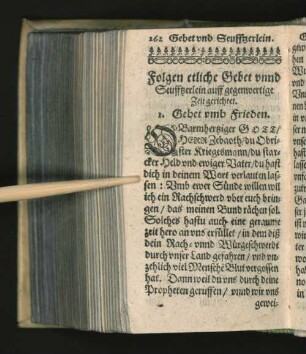 262 Gebet vnd Seufftzerlein.
Folgen etliche Gebet vnnd
Seufftzerlein auff gegenwertige
Zeit gerichtet.
1. Gebet vmb Frieden.
O Barmhertziger GOTT/
HERR Zebaoth/ du Obri-
ster Kriegesmann/ du star-
cker Held vnd ewiger Vater/ du hast
dich in deinem Wort verlauten las-
sen : Vmb ewer Sünde willen wil
ich ein Rachschwerd vber euch brin-
gen/ das meinen Bund rächen sol.
Solches hastu auch eine geraume
zeit hero an vns erfüllet/ in dem diß
dein Rach- vnnd Würgeschwerdt
durch vnser Land gefahren/ vnd vn-
zehlich viel Mensche Blut vergossen
hat. Dann weil du vns durch deine
Propheten geruffen/ vnnd wir vns
gewei-